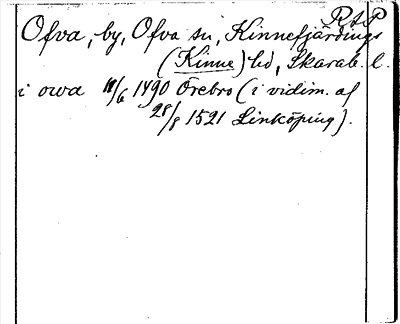 RAP
Ofva, by, Ofva sn, Kinnefjärdings
(Kinne) hd, Skarab. l.
i owa 18/6 1490 Örebro (i vidim. af
28/8 1521 Linköping).